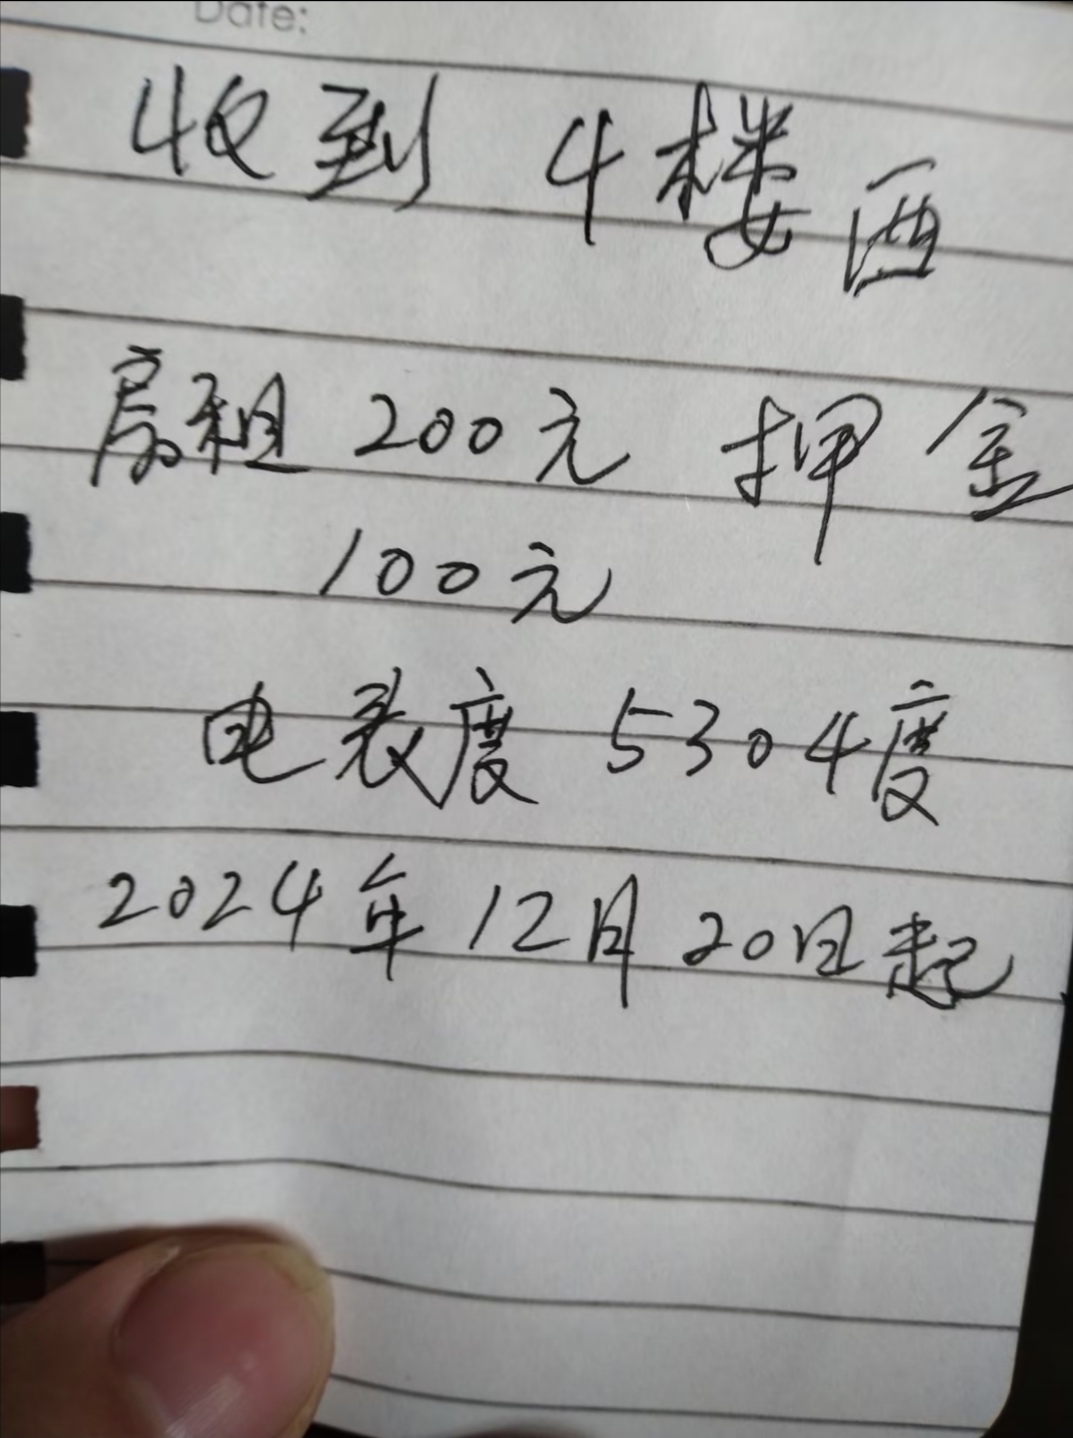 Date:
收到 4楼西
房租 200元 押金
100元
电表度 5304度
2024年12月20日起